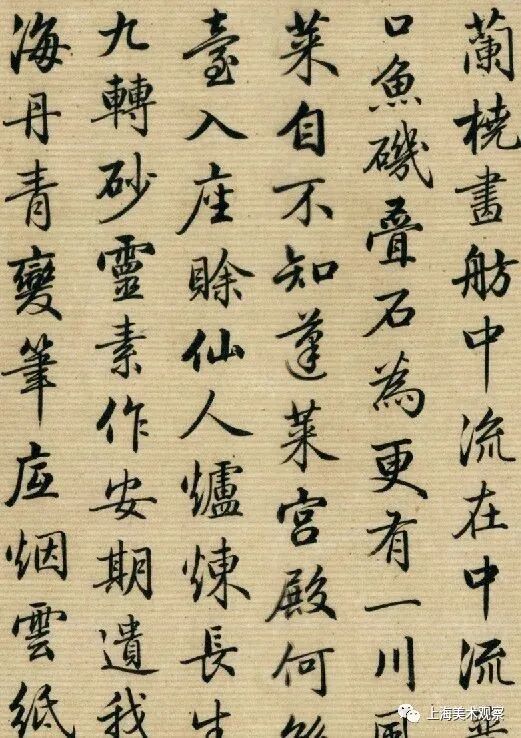 蘭橈畫舫中流在中流
口魚磯疊石為更有一川風
萊自不知蓬萊宮殿何
臺入座賒仙人爐煉長生
九轉砂靈素作安期遺我
海丹青變筆底烟雲紙
上海美术观察